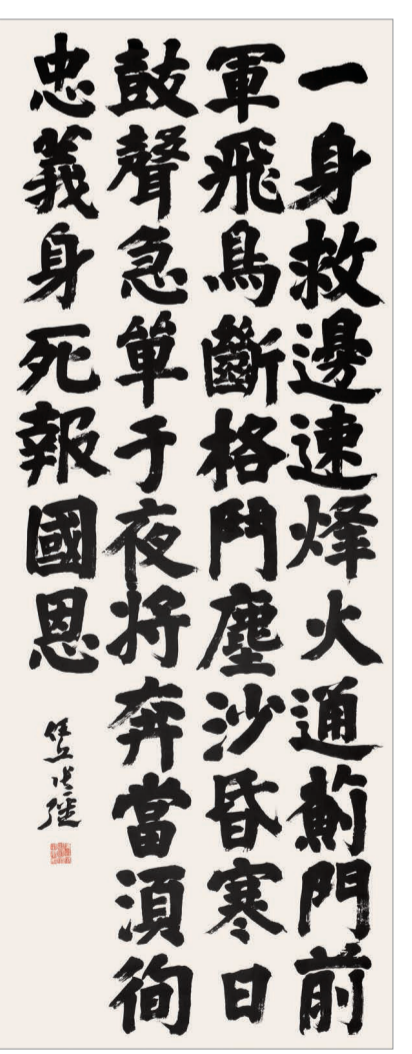 一身救邊速烽火通薊門前
軍飛鳥斷格鬥塵沙昏寒日
鼓聲急單于夜将奔當湏徇
忠義身死報國恩